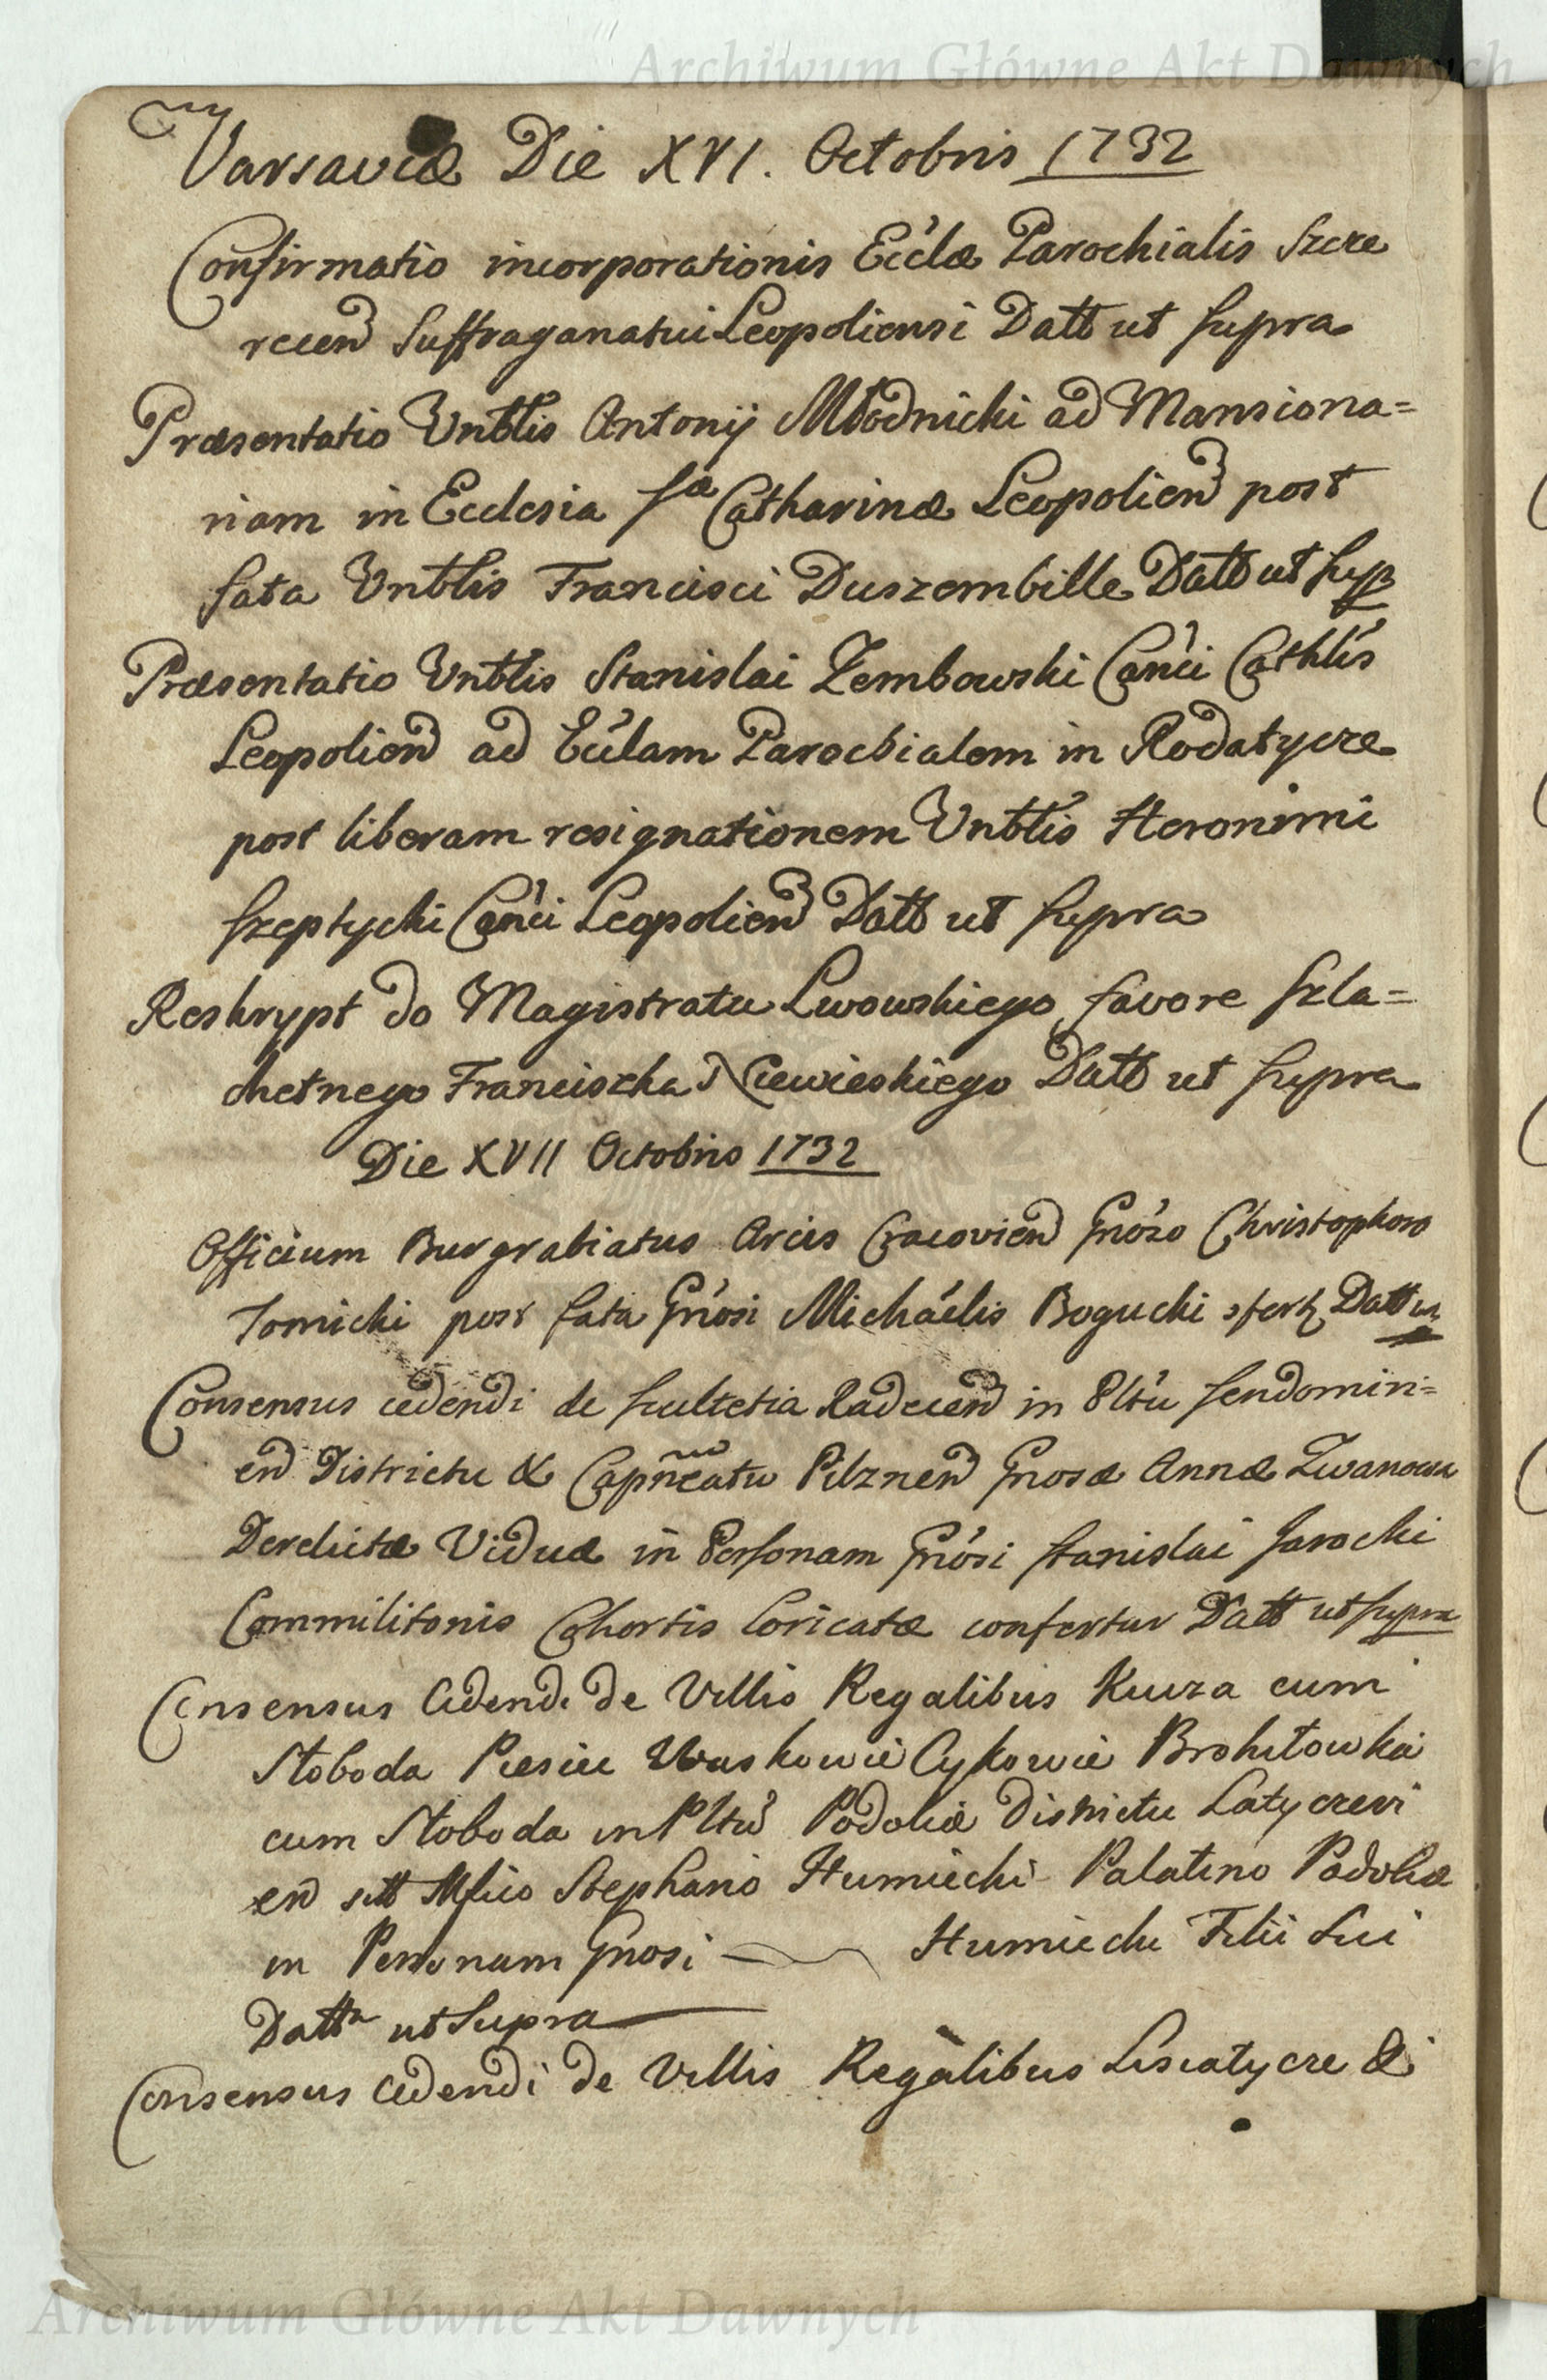 Archiwum Główne Akt Dawnych
Varsaviæ Die XVI. Octobris 1732
Confirmatio incorporationis Ecclæ Parochialis Szcze
recen Suffraganatui Leopoliensi Datt ut supra
Præsentatio Vnblis Antonij Młodnicki ad Mansiona=
riam in Ecclesia Sæ Catharinæ Leopolien post
fata Vnblis Francisci Duszembille Datt ut sup
Præsentatio Vnblis Stanislai Zembowski Canci Cathlis
Leopolien ad Ecclam Parochialem in Rodatycze
post liberam resignationem Vnblis Heronimi
Szeptycki Canci Leopolien Datt ut supra
Reskrypt do Magistratu Lwowskiego favore Szla=
chetnego Franciszka Niewieskiego Datt ut supra
Die XVII Octobris 1732
Officium Burgrabiatus Arcis Cracovien Gnoso Christophoro
Tomicki post fata Gnosi Michaëlis Bogucki Datt ut
Consensus cedendi de Scultetia Radecen in Pltu Sendomiri=
en Districtu & Capneatu Pilznen Gnosæ Annæ Zwanowa
Derelictæ Viduæ in Personam Gnosi Stanislai Jarocki
Commilitonis Cohortis Loricatæ confertur Datt ut supra
Consensus Cedendi de Villis Regalibus Kuwza cum
Słoboda Piesiec Waskowie Cykowie Brohitowka
cum Słoboda in Pltu Podoliæ Districtu Latyczevi
en Mfico Stephano Humiecki Palatino Podoliæ
in Personam Gnosi Humiecki Filii Sui
Datt ut Supra
Consensus Cedendi de Villis Regalibus Lisiatycze &
Archiwum Główne Akt Dawnych